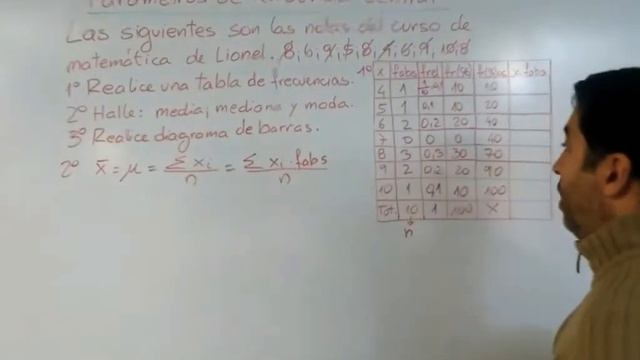 Las siguientes son las notas del curso de
matemática de Lionel. 8, 6, 9, 5, 8, 4, 6, 9, 10, 8
1º Realice una tabla de frecuencias.
2º Halle: media, mediana y moda.
3º Realice diagrama de barras.
2º x̄ = μ = Σ xi / n = Σ xi · fabs / n
1º x fabs frel fr(%)
4 1 1/10 0,1 10 10
5 1 0,1 10 20
6 2 0,2 20 40
7 0 0 0 40
8 3 0,3 30 70
9 2 0,2 20 90
10 1 0,1 10 100
Tot. 10 1 100 X
n